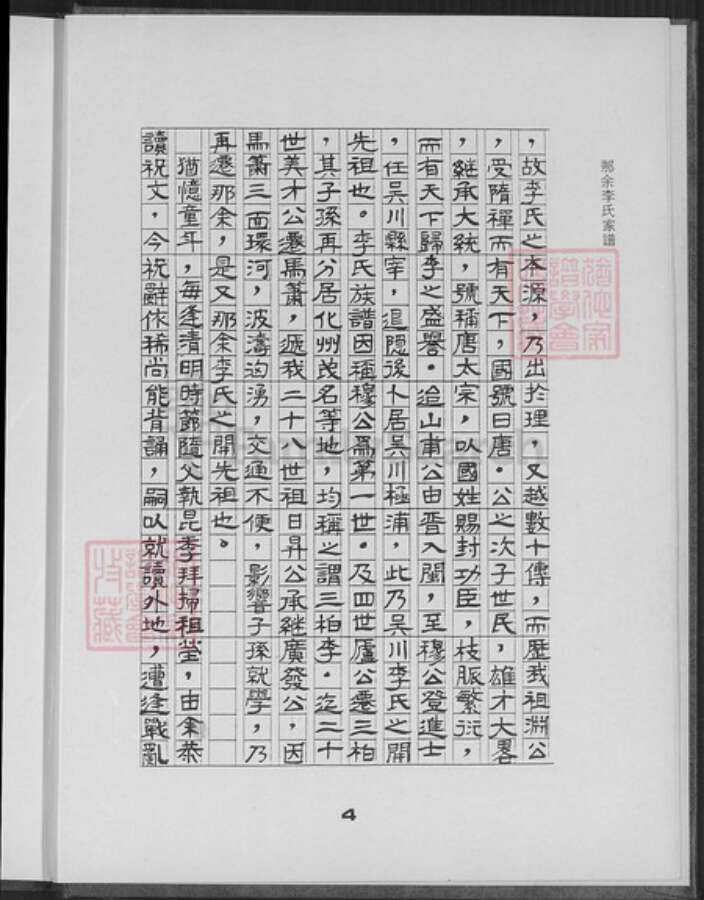 那余李氏家譜
，故李氏之本源，乃出於理，又越數十傳，而歷我祖淵公
，受隋禪而有天下，國號曰唐。公之次子世民，雄才大畧
，繼承大統，號稱唐太宗，以國姓賜封功臣，枝脈繁衍，
而有天下歸李之盛譽。迨山甫公由晋入閩，至穆公登進士
，任吳川縣宰，退隱後卜居吳川極浦，此乃吳川李氏之開
先祖也。李氏族譜因稱穆公為第一世。及四世廬公遷三柏
，其子孫再分居化州茂名等地，均稱之謂三柏李。迄二十
世美才公遷馬蕭，遞我二十八世祖日昇公承継廣發公，因
馬蕭三面環河，波濤洶湧，交通不便，影響子孫就學，乃
再遷那余，是又那余李氏之開先祖也。
猶憶童年，每逢清明時節隨父執昆季拜掃祖塋，由余恭
讀祝文，今祝辭依稀尚能背誦，嗣以就讀外地，遭逢戰亂
4